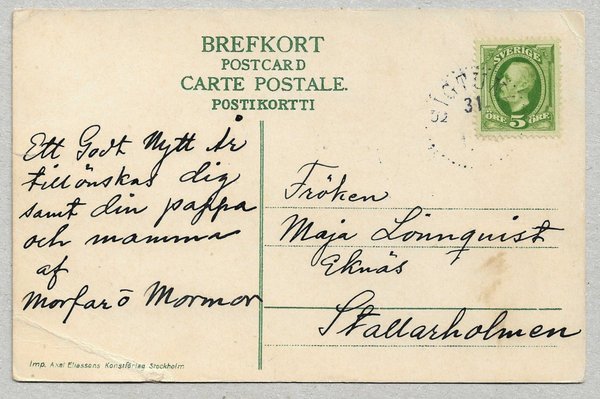 BREFKORT
POSTCARD
CARTE POSTALE.
POSTIKORTTI
SVERIGE
ÖRE 5 ÖRE
SIGTU
31
Ett Godt Nytt År
tillönskas dig
samt din pappa
och mamma
af
Morfar o Mormor
Fröken
Maja Lönnquist
Eknäs
Stallarholmen
Imp. Axel Eliassons Konstförlag Stockholm